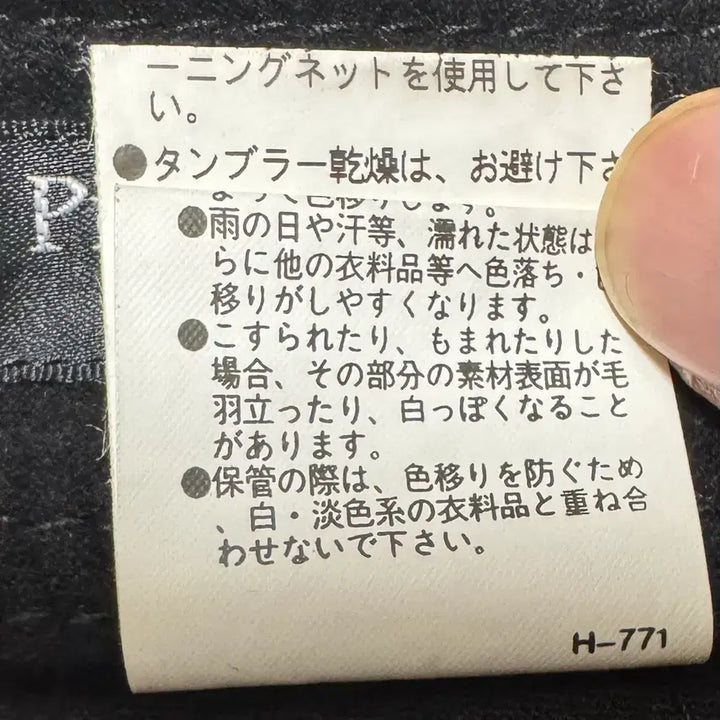 ーニングネットを使用して下さ
い。
●タンブラー乾燥は、お避け下さ
●雨の日や汗等、濡れた状態は
らに他の衣料品等へ色落ち・
移りがしやすくなります。
●こすられたり、もまれたりした
場合、その部分の素材表面が毛
羽立ったり、白っぽくなること
があります。
●保管の際は、色移りを防ぐため
、白・淡色系の衣料品と重ね合
わせないで下さい。
H-771
P